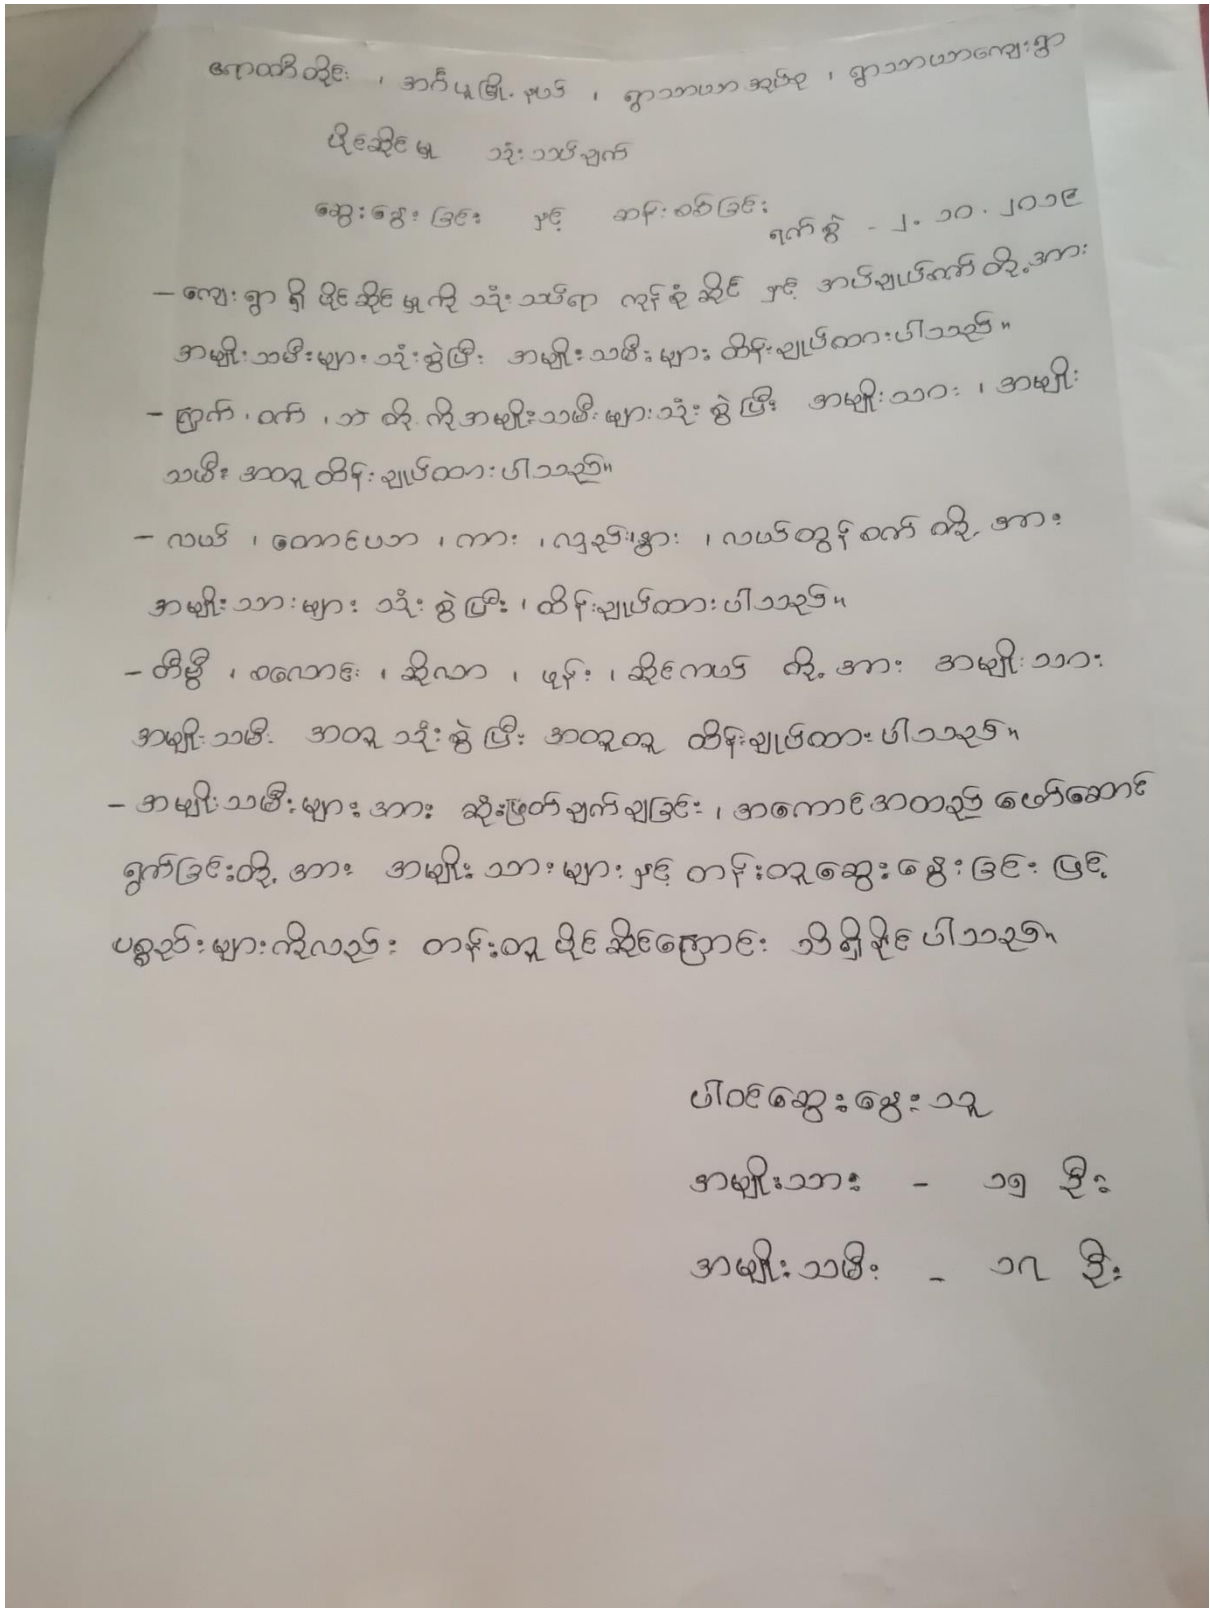 ဧရာဝတီတိုင်း ၊ အင်္ဂပူမြို့နယ် ၊ ရွာသာယာအုပ်စု ၊ ရွာသာယာကျေးရွာ
ပိုင်ဆိုင်မှု သုံးသပ်ချက်
ဆွေးနွေးခြင်း နှင့် ဆန်းစစ်ခြင်း
ရက်စွဲ - ၂.၁၀.၂၀၁၉
– ကျေးရွာရှိ ပိုင်ဆိုင်မှုကို သုံးသပ်ရာ ကုန်စုံဆိုင် နှင့် အပ်ချုပ်စက်တို့အား
အမျိုးသမီးများ သုံးစွဲပြီး အမျိုးသမီးများ ထိန်းချုပ်ထားပါသည်။
– ကြက်၊ ဝက် ၊ ဘဲ တို့ကို အမျိုးသမီးများသုံးစွဲပြီး အမျိုးသား ၊ အမျိုး
သမီး အတူ ထိန်းချုပ်ထားပါသည်။
– လယ် ၊ တောင်ယာ ၊ ကား ၊ လှည်း၊နွား ၊ လယ်ထွန်စက် တို့အား
အမျိုးသားများ သုံးစွဲပြီး ၊ ထိန်းချုပ်ထားပါသည်။
– တီဗွီ ၊ စလောင်း ၊ ဆိုလာ ၊ ဖုန်း ၊ ဆိုင်ကယ် တို့အား အမျိုးသား
အမျိုးသမီး အတူသုံးစွဲပြီး အတူတူ ထိန်းချုပ်ထားပါသည်။
– အမျိုးသမီးများအား ဆုံးဖြတ်ချက်ချခြင်း ၊ အကောင်အထည်ဖော်ဆောင်
ရွက်ခြင်းတို့အား အမျိုးသားများနှင့် တန်းတူဆွေးနွေးခြင်းဖြင့်
ပစ္စည်းများကိုလည်း တန်းတူပိုင်ဆိုင်ကြောင်း သိရှိနိုင်ပါသည်။
ပါဝင်ဆွေးနွေးသူ
အမျိုးသား – ၁၅ ဦး
အမျိုးသမီး – ၁၇ ဦး